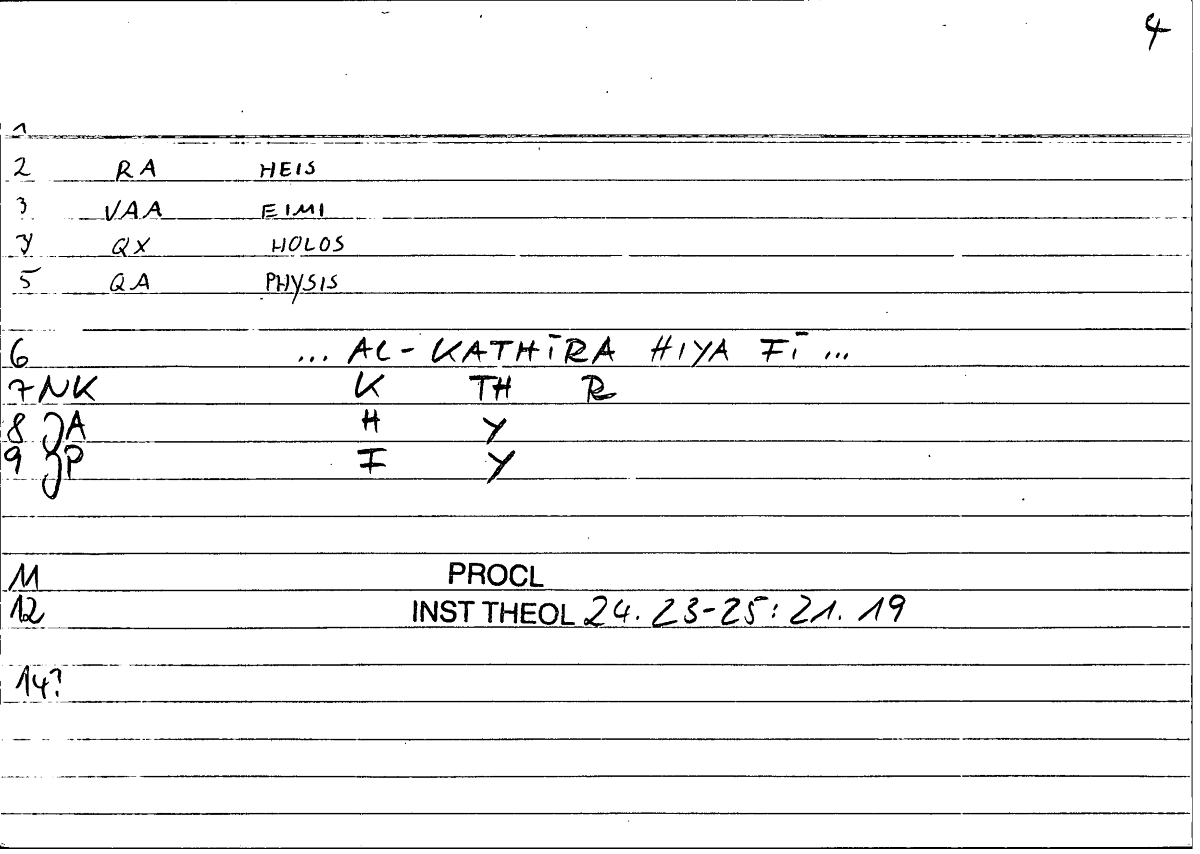 4
1
2 RA HEIS
3 VAA EIMI
4 QX HOLOS
5 QA PHYSIS
6 ... AL-KATHĪRA HIYA FĪ ...
7 NK K TH R
8 JA H Y
9 JP F Y
11 PROCL
12 INST THEOL 24. 23-25: 21. 19
14?